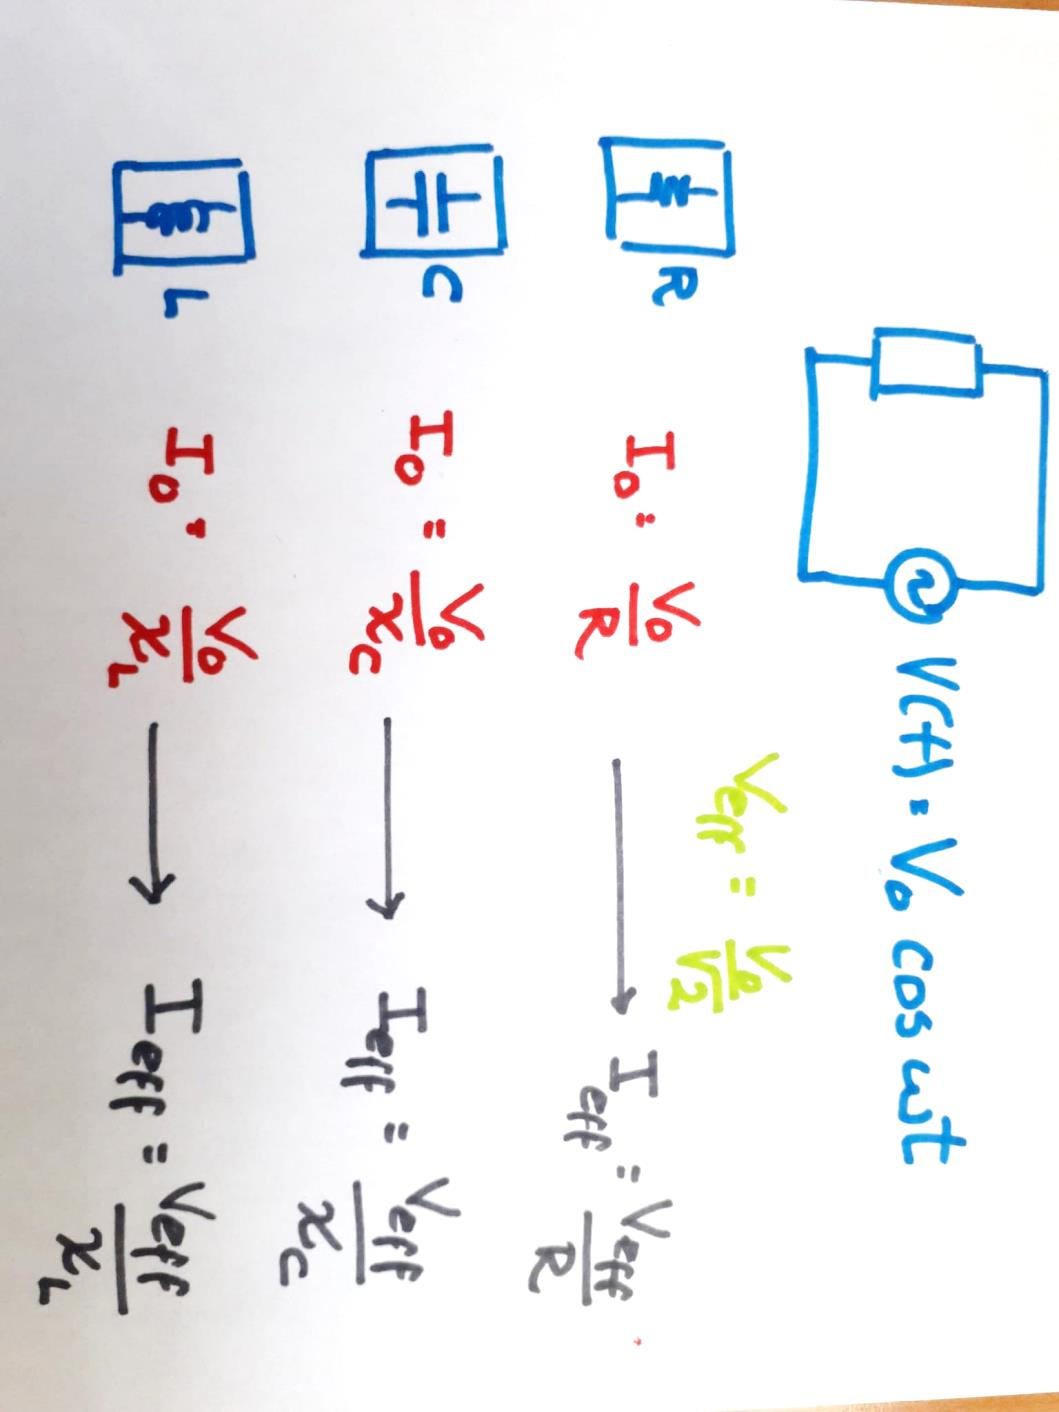 V(t) = V₀ cos ωt
V_eff = V₀/√2
R I₀ = V₀/R → I_eff = V_eff/R
C I₀ = V₀/x_C → I_eff = V_eff/x_C
L I₀ = V₀/x_L → I_eff = V_eff/x_L